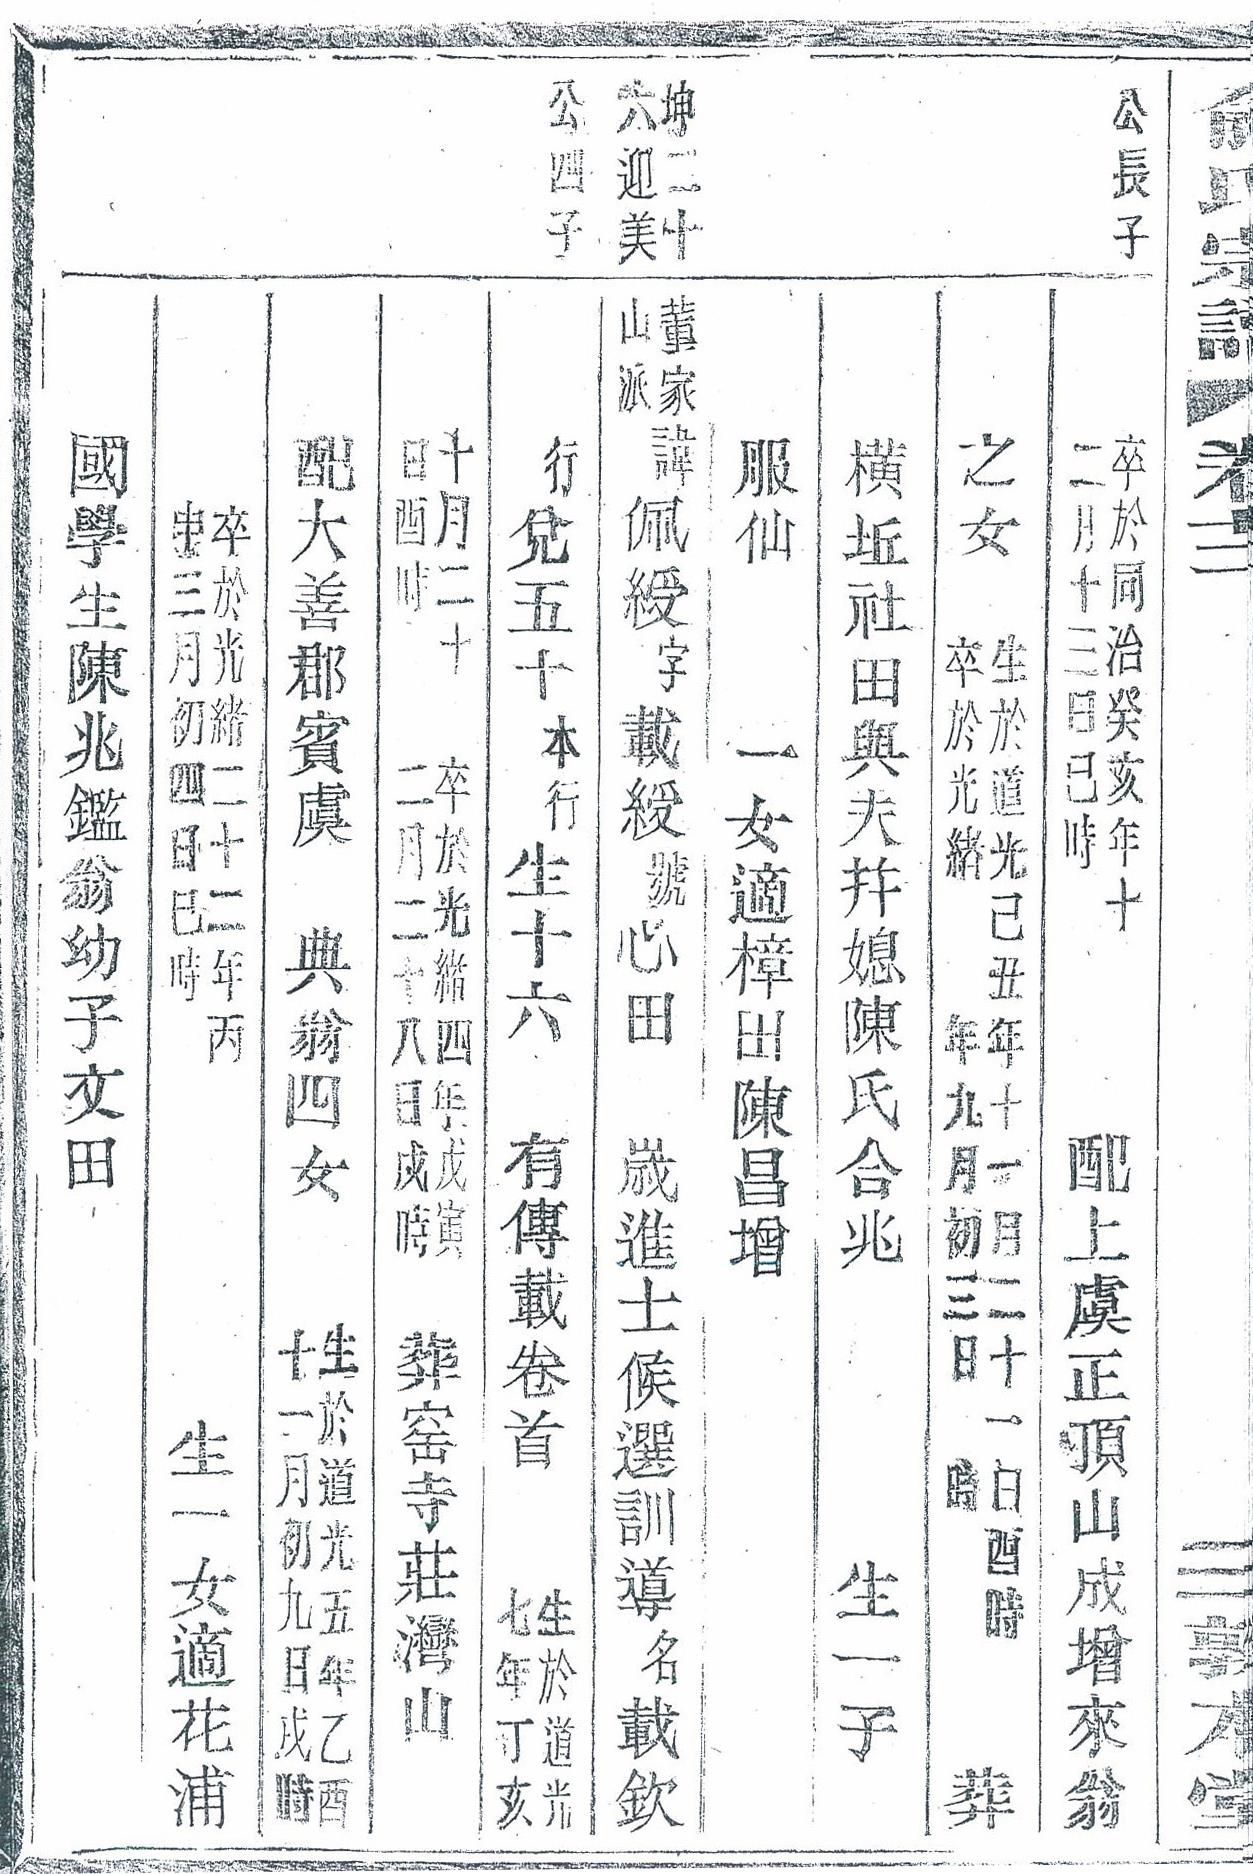 俞氏宗譜
卷十二
三
敦本堂
公長子
卒於同治癸亥年十
二月十三日巳時
配上虞正頂山成增來翁
之女
生於道光己丑年十一月二十一日酉時
卒於光緒 年九月初三日 時
葬
橫坵社田與夫并媳陳氏合兆
生一子
服仙
一女適樟出陳昌增
坤二十
六迎美
公四子
董家
山派
諱佩綬字載綬號心田
歲進士候選訓導名載欽
行兌五十本行生十六
有傳載卷首
生於道光
七年丁亥
十月二十
日酉時
卒於光緒四年戊寅
二月二十八日戌時
葬窑寺莊灣山
配大善郡賓虞
典翁四女
生於道光五年乙酉
十一月初九日戌時
卒於光緒二十二年丙
申三月初四日巳時
生一女適花浦
國學生陳兆鑑翁幼子文田